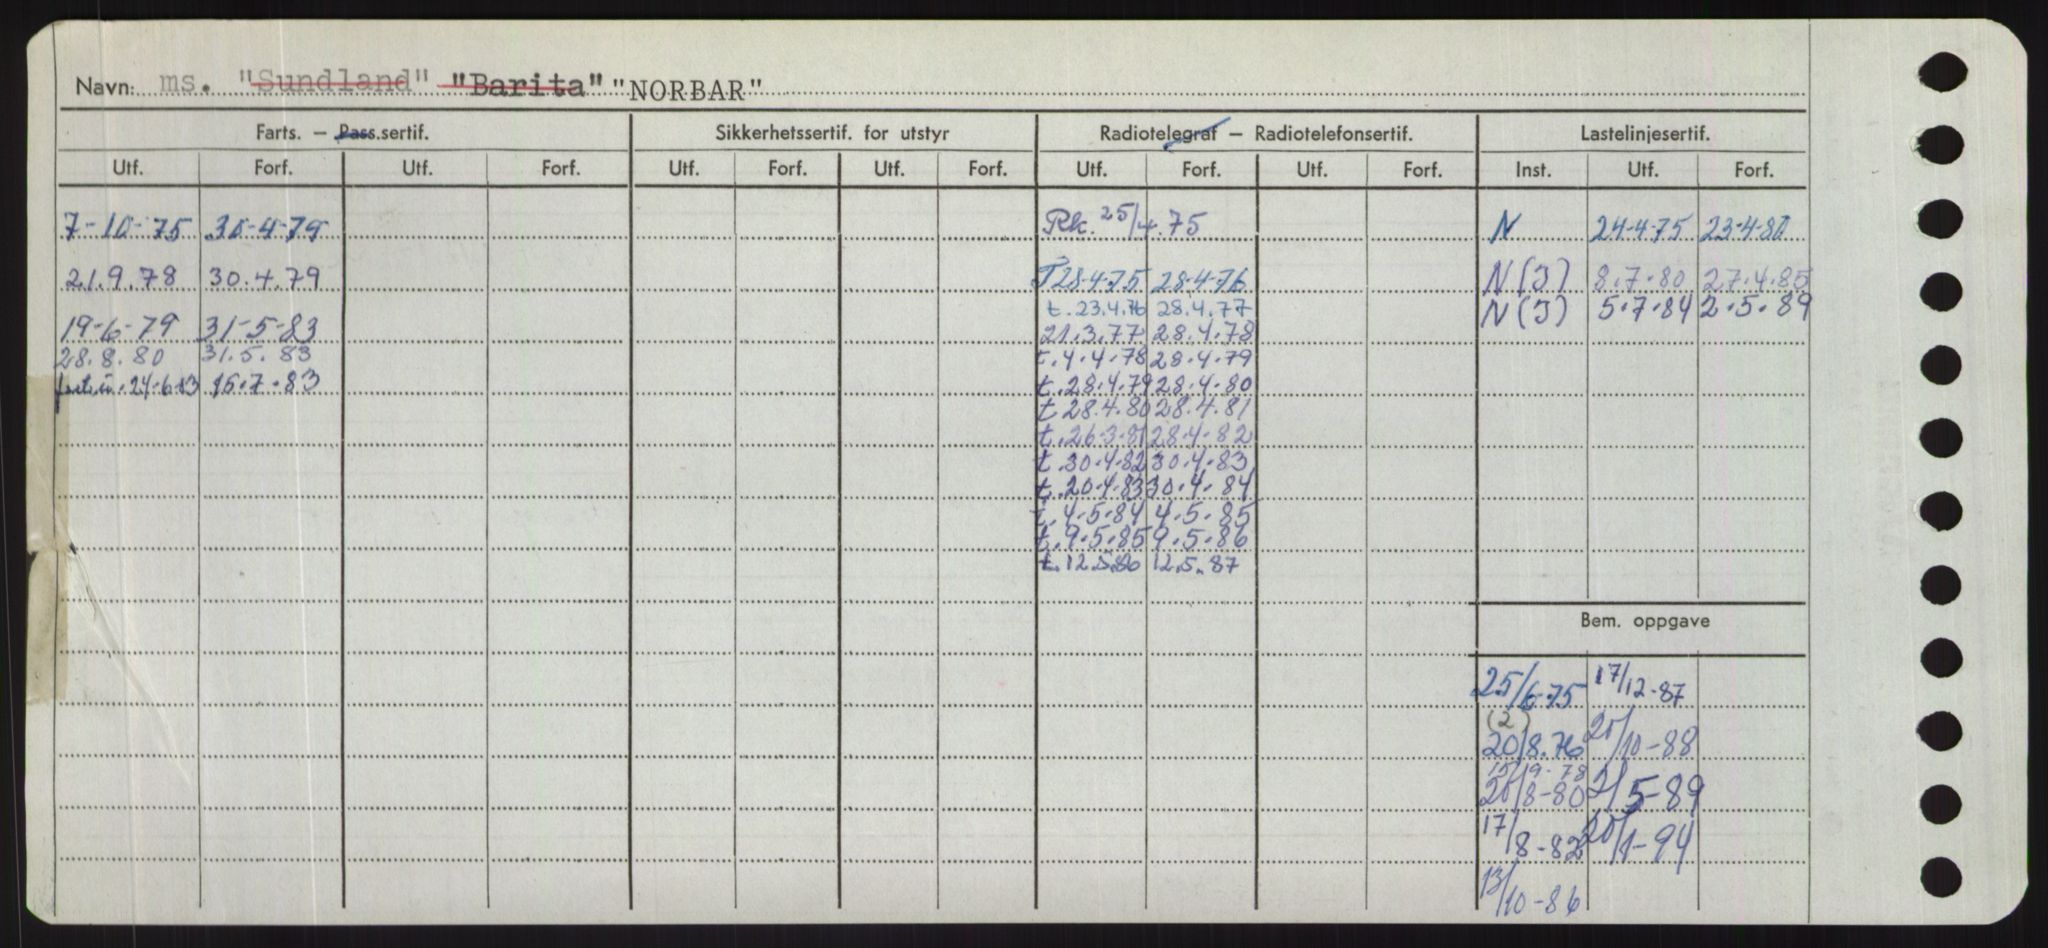 Navn: ms. "Sundland" "Barita" "NORBAR"
Farts. – Pass.sertif. Sikkerhetssertif. for utstyr Radiotelegraf – Radiotelefonsertif. Lastelinjesertif.
Utf. Forf. Utf. Forf. Utf. Forf. Utf. Forf. Utf. Forf. Utf. Forf. Inst. Utf. Forf.
7-10-75 30-4-79 Rk. 25/4.75 N 24-4-75 23-4-80
21.9.78 30.4.79 T 28-4-75 28-4-76 N(J) 8.7.80 27.4.85
t. 23.4.76 28.4.77 N(J) 5.7.84 2.5.89
19-6-79 31-5-83 21.3.77 28.4.78
28.8.80 31.5.83 t. 4.4.78 28.4.79
24-6-83 15.7.83 t. 28.4.79 28.4.80
t. 28.4.80 28.4.81
t. 26-3-81 28.4.82
t. 30.4.82 30.4.83
t. 20.4.83 30.4.84
t. 4.5.84 4.5.85
t. 9.5.85 9.5.86
t. 12.5.86 12.5.87
Bem. oppgave
25/6-75 17/12-87
(2)
20/8.76 /10-88
15/9-78
/8-80 2/5-89
17/8-82 20/1-94
13/10-86